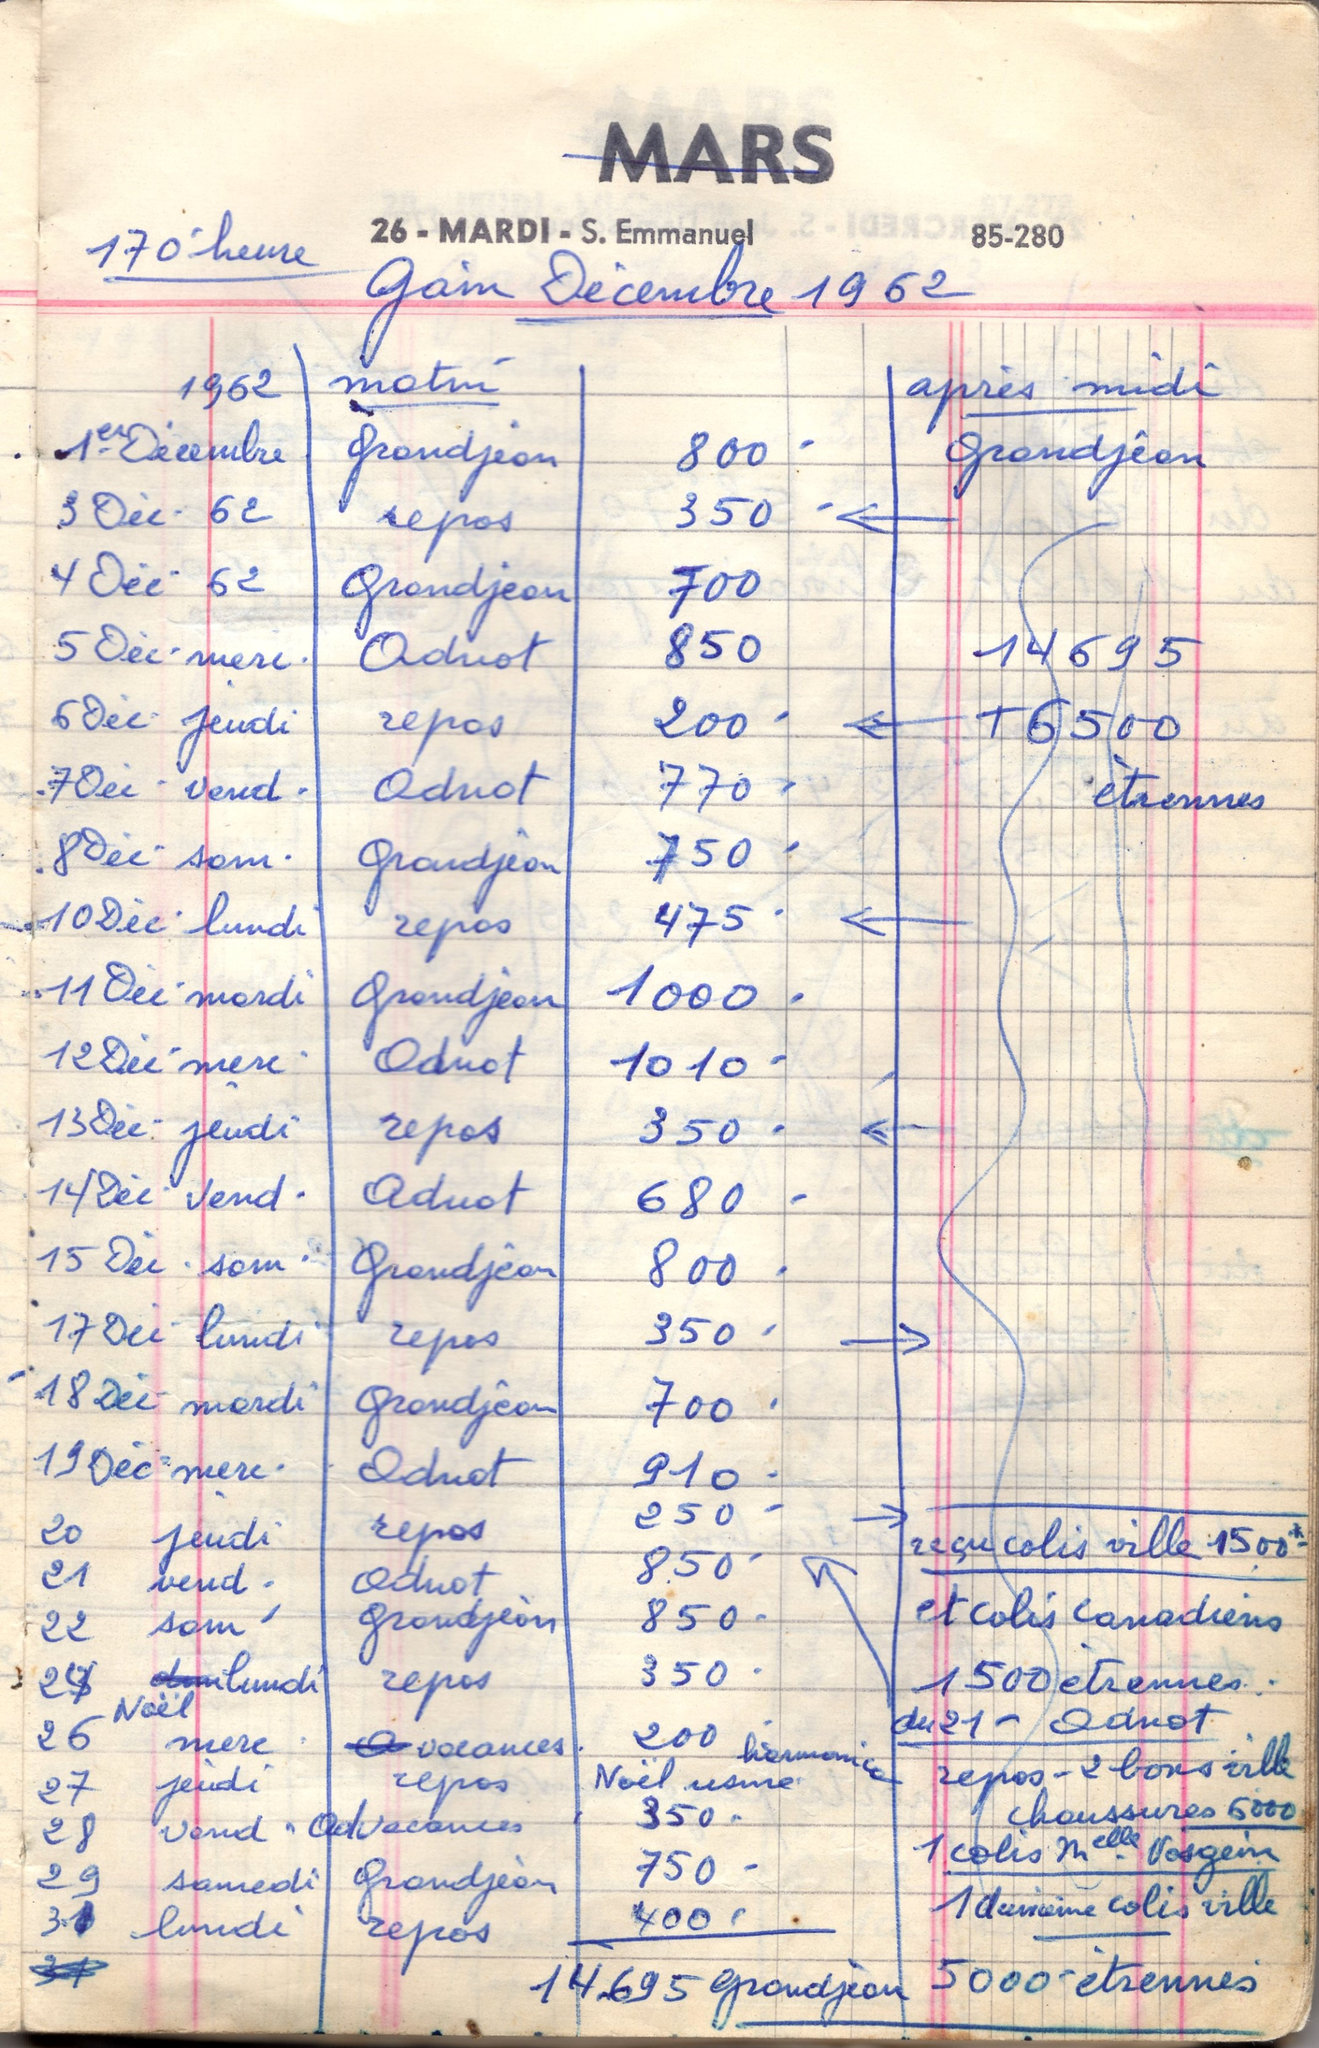 MARS
26 - MARDI - S. Emmanuel 85-280
170 heure
Gain Décembre 1962
1962 matin après midi
1er Décembre Grandjean 800 Grandjean
3 Déc. 62 repos 350 ←
4 Déc 62 Grandjean 700
5 Déc. merc. Adnot 850 14695
6 Déc jeudi repos 200 ← +6500
7 Déc. vend. Adnot 770 étrennes
8 Déc. sam. Grandjean 750
10 Déc. lundi repos 475 ←
11 Déc. mardi Grandjean 1000
12 Déc. merc. Adnot 1010
13 Déc. jeudi repos 350 ←
14 Déc. vend. Adnot 680
15 Déc. sam. Grandjean 800
17 Déc lundi repos 350 →
18 Déc mardi Grandjean 700
19 Déc merc. Adnot 910
20 jeudi repos 250 → reçu colis ville 1500
21 vend. Adnot 850
22 sam Grandjean 850 et colis Canadiens
24 lundi repos 350 1500 étrennes
Noël du 21 - Adnot
26 merc. vacances. 200
27 jeudi repos Noël usine harmonie repos - 2 bons ville
28 vend. Ad vacances 350 chaussures 5000
29 samedi Grandjean 750 1 colis Melle
31 lundi repos 400 1 deuxième colis ville
14.695 Grandjean 5000 étrennes